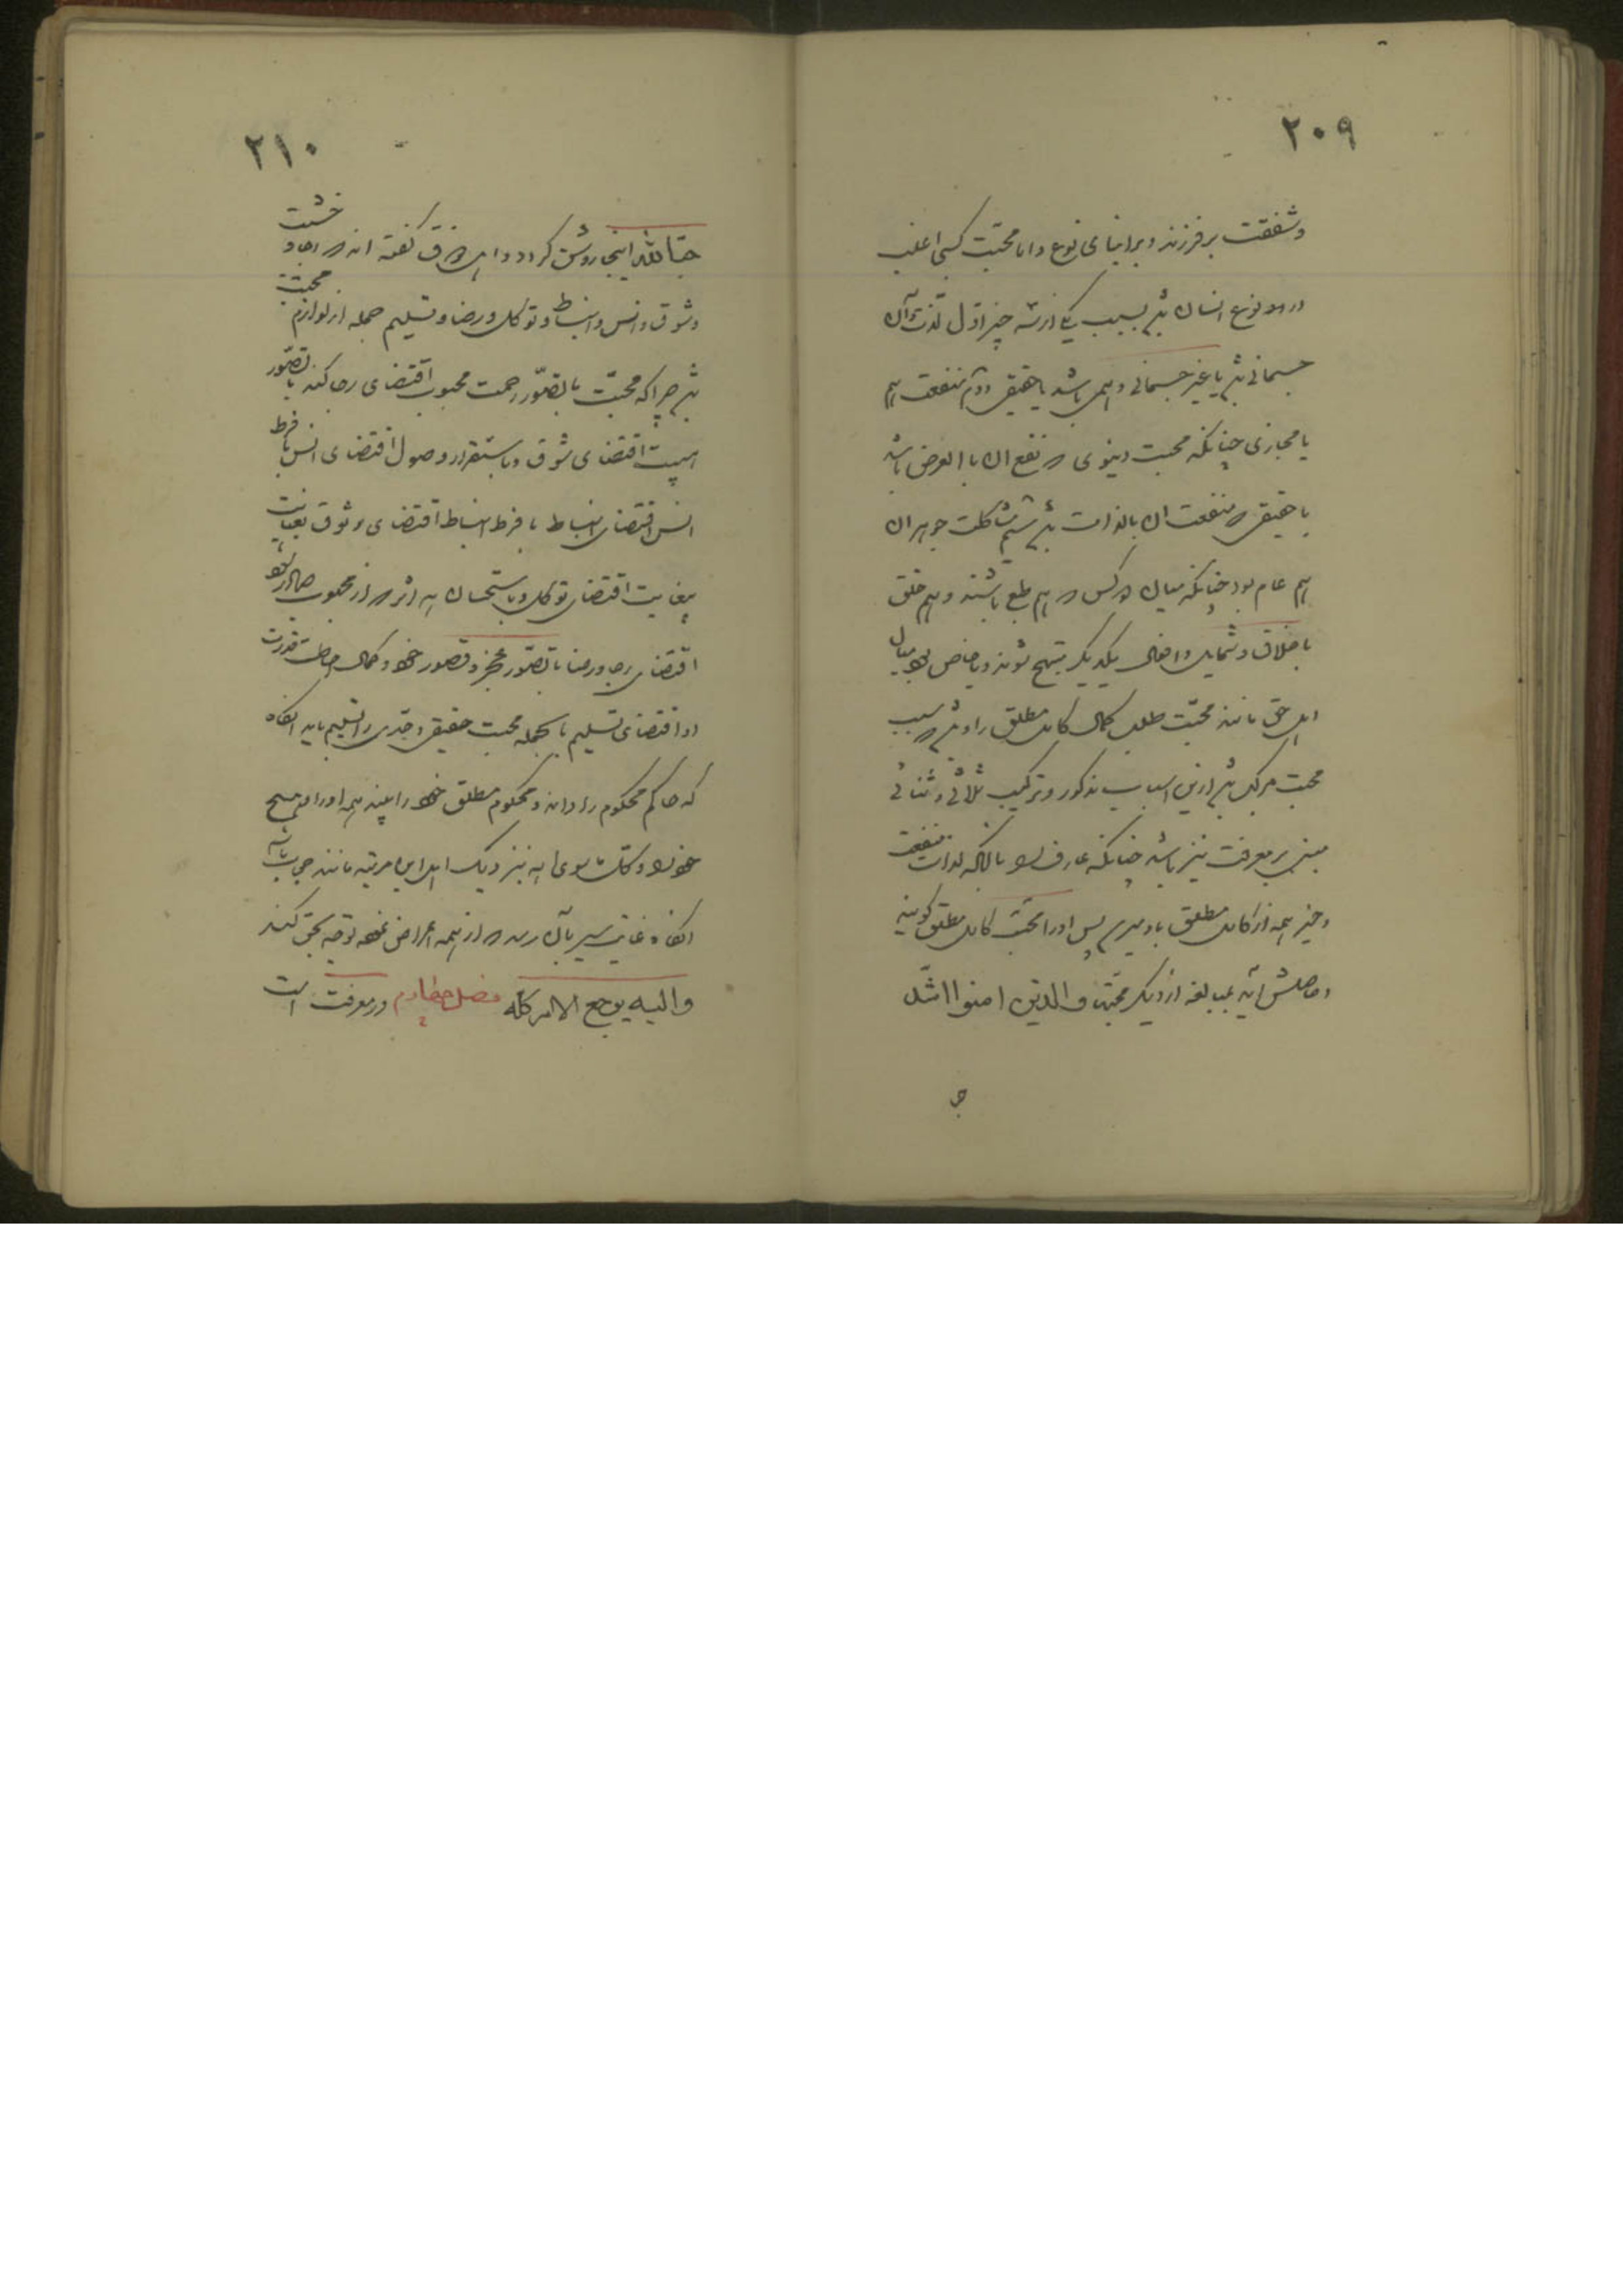 ۲۰۹
وشفقت بر فرزند و بر ابنای نوع و اما محبّت کسبی اغلب
در نوع انسان بسبب یکی از سه چیز اوّل لذّت و آن
جسمانی یا غیر جسمانی وهمی باشد یا حقیقی دوم منفعت هم
یا مجازی چنانکه محبت دنیوی که نفع ان بالعرض باشد
یا حقیقی که منفعت ان بالذات سیّم مشاکلت جوهر ان
هم عام بود چنانکه میان دو کس که هم طبع باشند و هم خلق
باخلاق و شمایل و افعال یکدیگر مبتهج شوند و یا خاص بود میان
اهل حق مانند محبّت طلب کمال کامل مطلق را و سبب
محبت مرکب ازین اسباب مذکور و ترکیب ثلاثی و ثنائی
مبنی بر معرفت نیز باشد چنانکه عارف را با آنکه لذات منفعت
و خیر همه از کامل مطلق باو میرسد پس او را محبّت کامل مطلق گویند
و حاصلش آید بمبالغه از دیگر محبّتها والذین امنوا اشدّ
۲۱۰
حبّا لله اینجا روشن گردد و اهل ذوق گفته اند که رجا و خشیت
وشوق و انس و انبساط و توکل و رضا و تسلیم جمله از لوازم محبت
چرا که محبّت با تصوّر رحمت محبوب اقتضای رجا کند با تصوّر
هیبت اقتضای شوق و باستقرار وصول اقتضای انس با فرط
انس اقتضای انبساط با فرط انبساط اقتضای وثوق بعنایت
بعنایت اقتضای توکل و باستحسان هر اثر که از محبوب صادر شود
اقتضای رجا و رضا با تصوّر عجز و قصور خود و کمال احاطت قدرت
او اقتضای تسلیم بالجمله محبت حقیقی و جدّی را تسلیم باید انگاه
که حاکم محکوم را داند و محکوم مطلق خود را بیند همه او را و هیچ
خود را و کل ماسوی الله نزدیک اهل این مرتبه مانند حجاب باشد
انگاه غایت سیر بآن رسد که از همه اعراض نموده توجه بحق کند
والیه یرجع الامر کله فصل چهارم در معرفت است